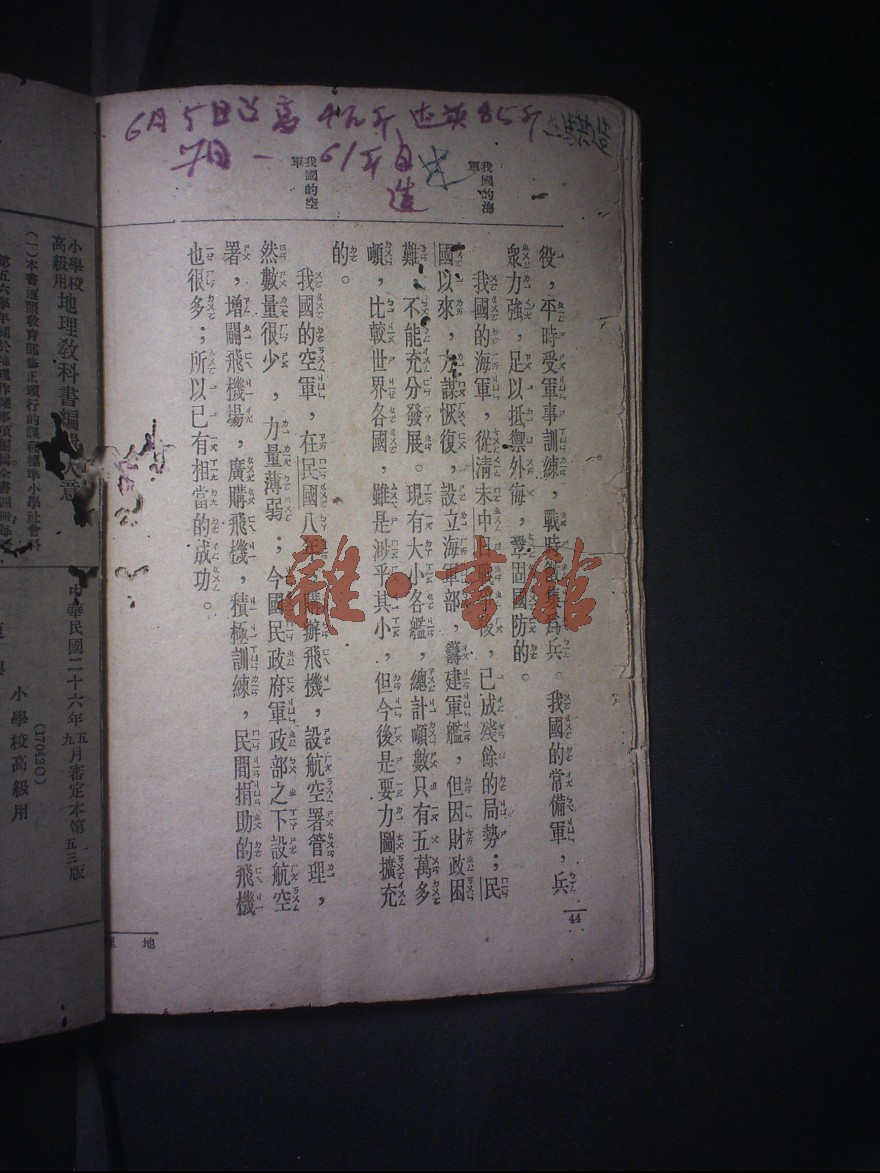 6月5日
47斤
85斤
7月一61斤
造
我國的海軍
我國的空軍
役，平時受軍事訓練，戰時徵集爲兵。我國的常備軍，兵
衆力強，足以抵禦外侮，鞏固國防的。
我國的海軍，從清末中日戰後，已成殘餘的局勢；民
國以來，力謀恢復，設立海軍部，籌建軍艦，但因財政困
難，不能充分發展。現有大小各艦，總計噸數只有五萬多
噸，比較世界各國，雖是渺乎其小，但今後是要力圖擴充
的。
我國的空軍，在民國八年購辦飛機，設航空署管理，
然數量很少，力量薄弱；今國民政府軍政部之下設航空
署，增闢飛機場，廣購飛機，積極訓練，民間捐助的飛機
也很多；所以已有相當的成功。
44
地
雜·書館
小學校高級用地理教科書編
(一)本書遵照教育部修正頒行的課程標準小學社會科
中華民國二十六年五九月審定本第五三版
(17043C)
小學校高級用